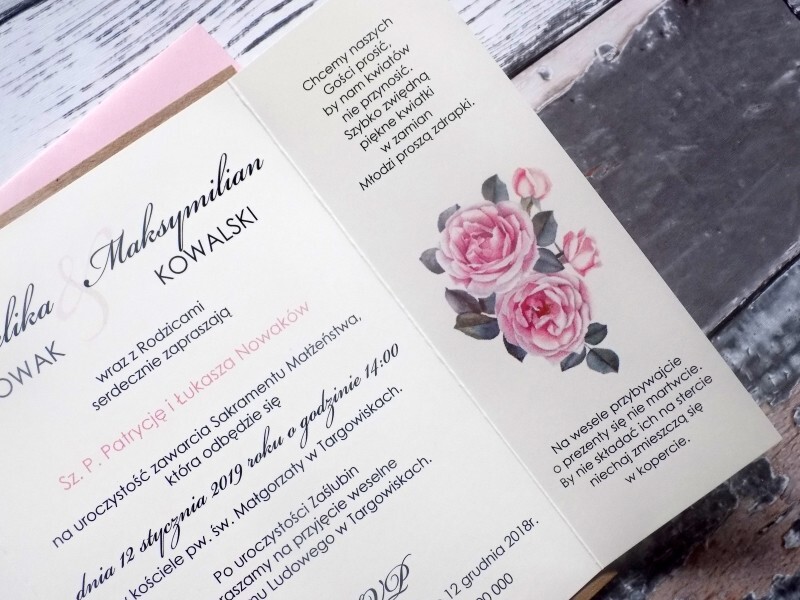 elika & Maksymilian
OWAK KOWALSKI
wraz z Rodzicami
serdecznie zapraszają
Sz. P. Patrycję i Łukasza Nowaków
na uroczystość zawarcia Sakramentu Małżeństwa,
która odbędzie się
dnia 12 stycznia 2019 roku o godzinie 14:00
kościele pw. św. Małgorzaty w Targowiskach.
Po uroczystości Zaślubin
raszamy na przyjęcie weselne
mu Ludowego w Targowiskach.
VP
12 grudnia 2018r.
00 000
Chcemy naszych
Gości prosić,
by nam kwiatów
nie przynosić.
Szybko zwiędną
piękne kwiatki
w zamian
Młodzi proszą zdrapki.
Na wesele przybywajcie
o prezenty się nie martwcie.
By nie składać ich na stercie
niechaj zmieszczą się
w kopercie.